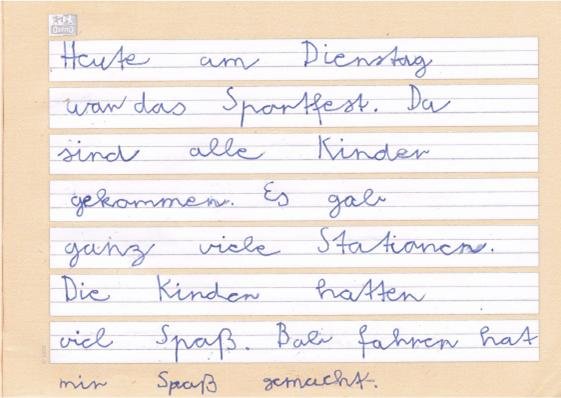 Heute am Dienstag
war das Sportfest. Da
sind alle Kinder
gekommen. Es gab
ganz viele Stationen.
Die Kinder hatten
viel Spaß. Bab fahren hat
mir Spaß gemacht.